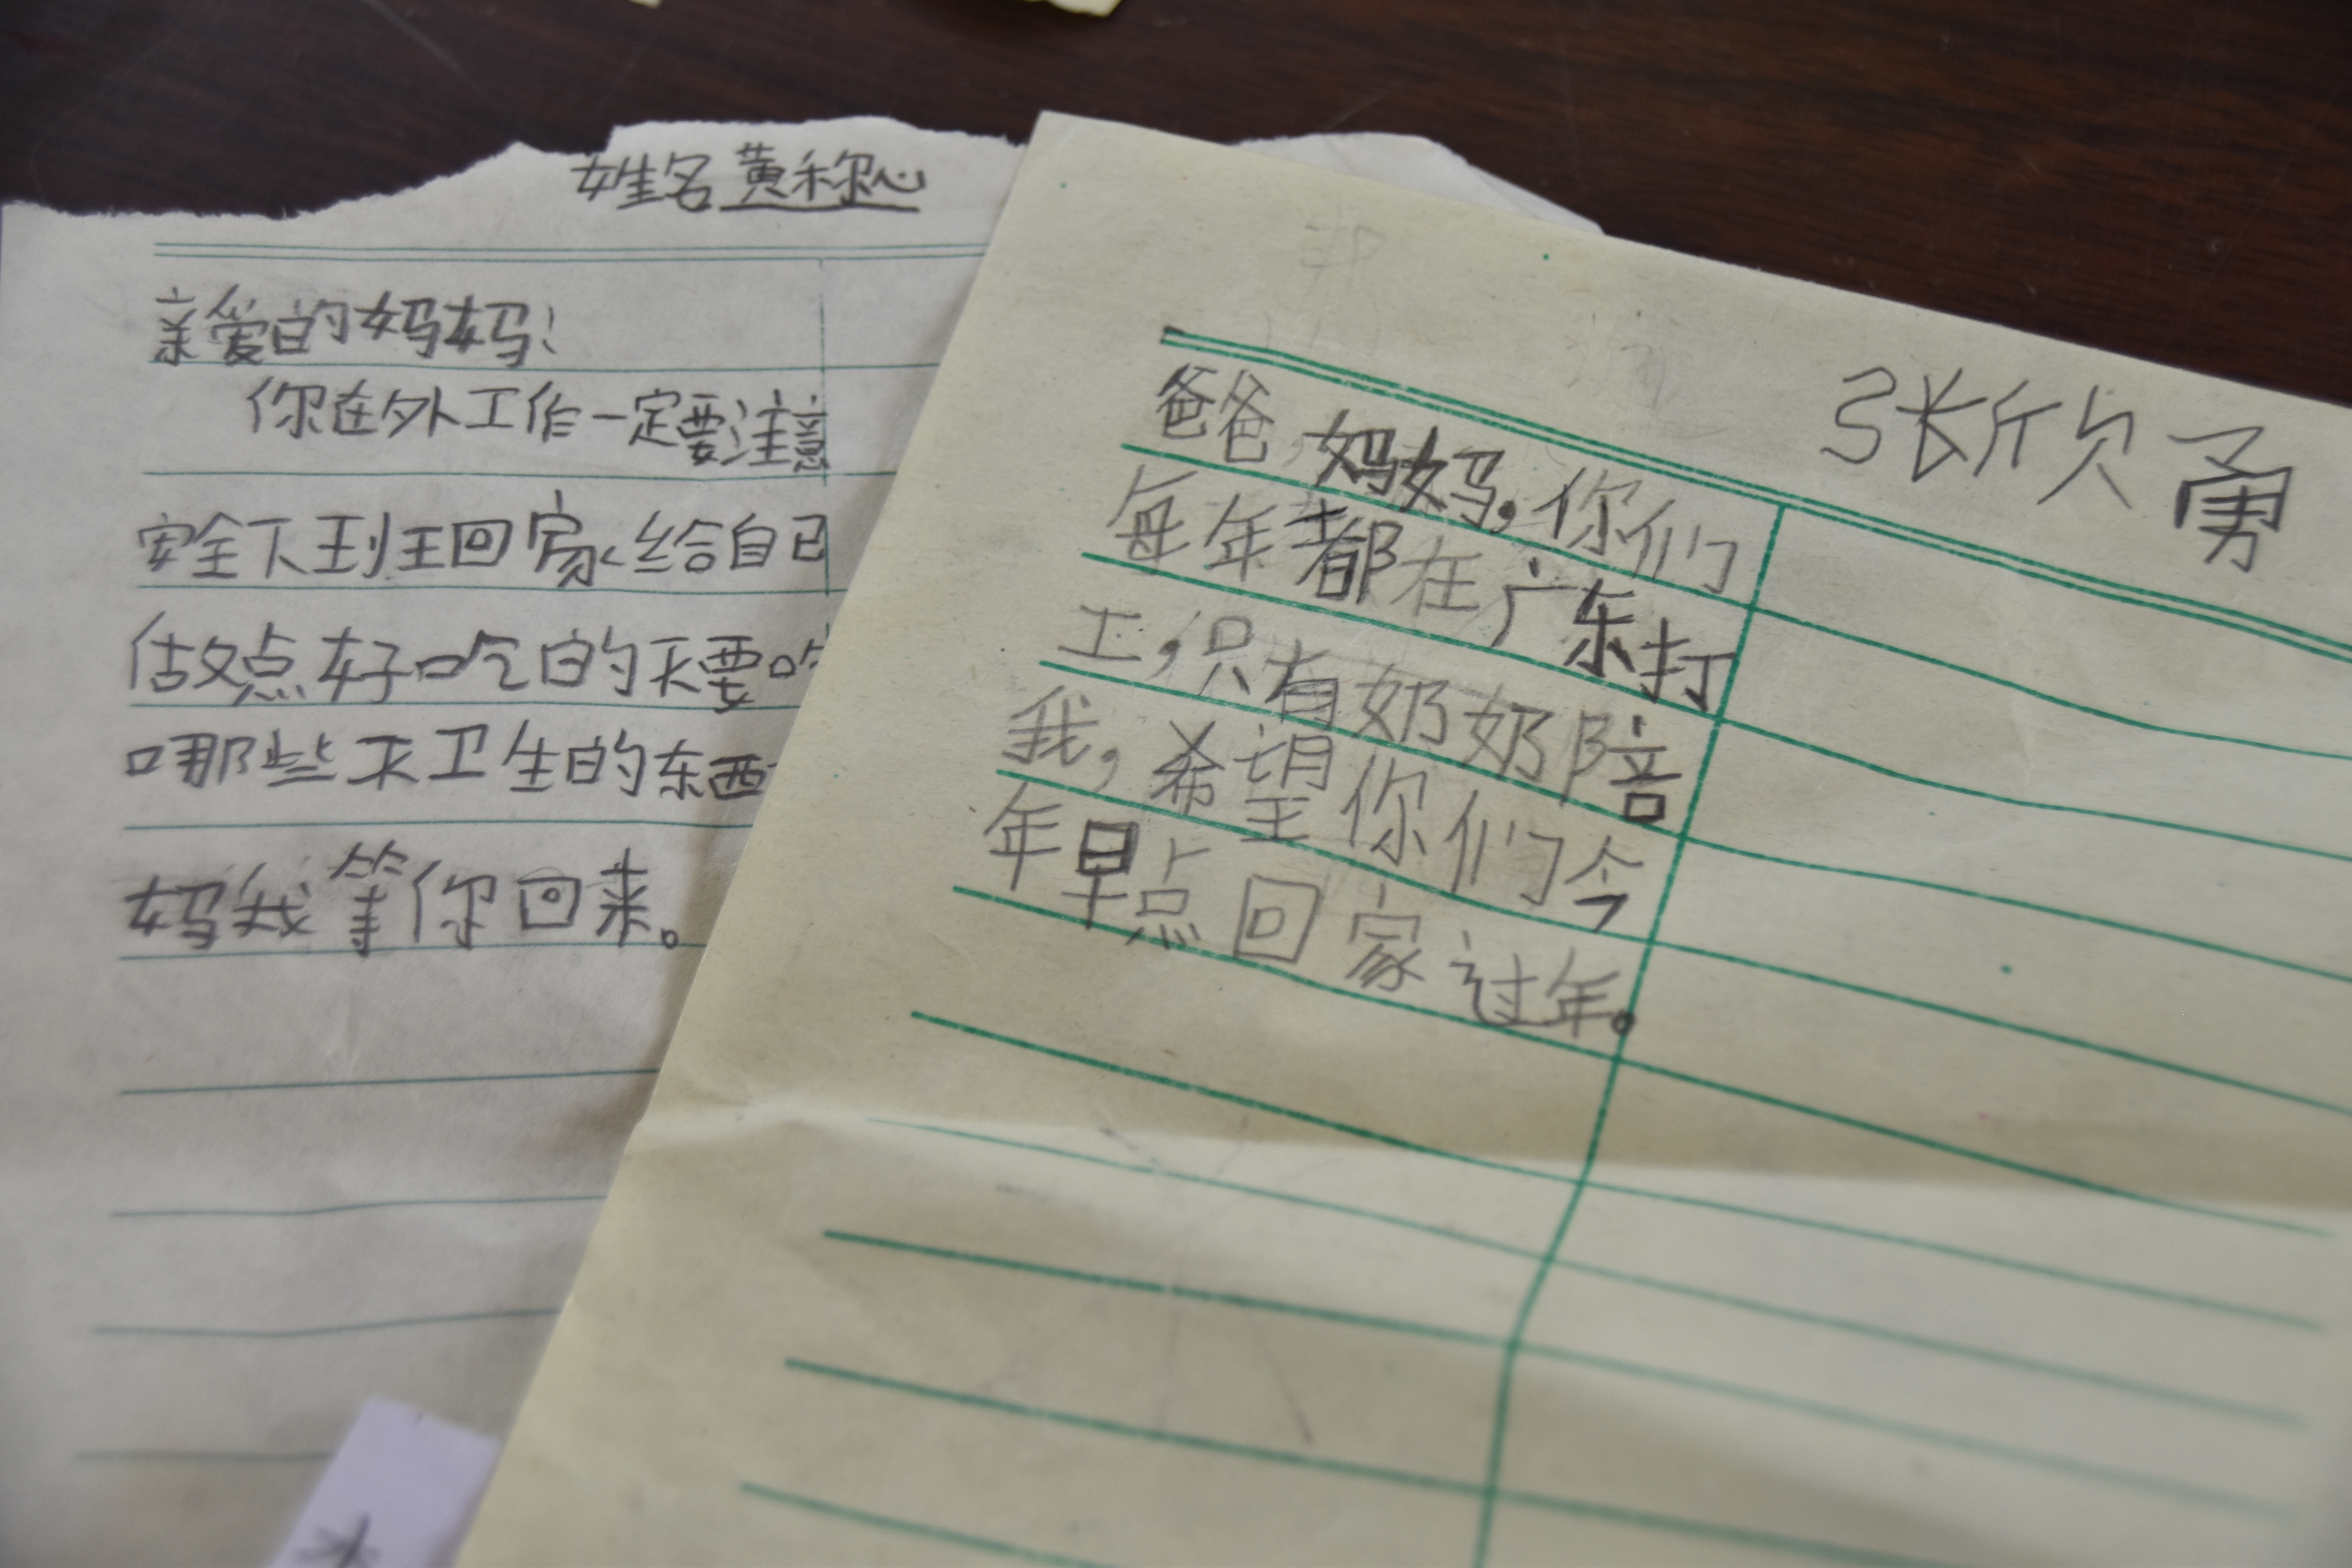 姓名 黄称心
亲爱的妈妈：
你在外工作一定要注意
安全下班回家、给自己
做点好吃的不要吃
哪些不卫生的东西
妈我等你回来。
张欣勇
爸爸,妈妈,你们
每年都在广东打
工,只有奶奶陪
我,希望你们今
年早点回家过年。